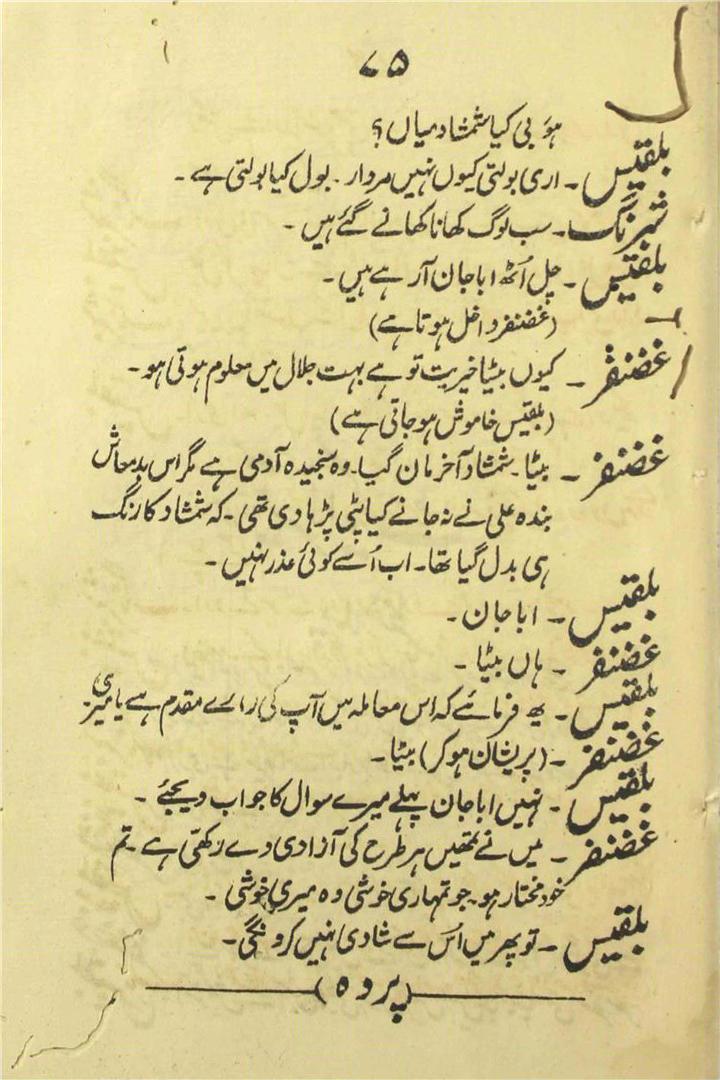 ۷۵
ہو بی کیا شمشاد میاں؟
بلقیس ۔ اری بولتی کیوں نہیں مردار ۔ بول کیا بولتی ہے ۔
شبرنگ ۔ سب لوگ کھانا کھانے گئے ہیں ۔
بلقیس ۔ چل اُٹھ ابا جان آ رہے ہیں ۔
(غضنفر داخل ہوتا ہے)
غضنفر ۔ کیوں بیٹا خیریت تو ہے بہت جلال میں معلوم ہوتی ہو ۔
(بلقیس خاموش ہو جاتی ہے)
غضنفر ۔ بیٹا ۔ شمشاد آخر مان گیا ۔ وہ سنجیدہ آدمی ہے مگر اس بدمعاش
بندہ علی نے نہ جانے کیا پٹی پڑہا دی تھی ۔ کہ شمشاد کا رنگ
ہی بدل گیا تھا ۔ اب اُسے کوئی عذر نہیں ۔
بلقیس ۔ ابا جان ۔
غضنفر ۔ ہاں بیٹا ۔
بلقیس ۔ یہ فرمائے کہ اس معاملہ میں آپ کی رائے مقدم ہے یا میری
غضنفر ۔ (پریشان ہو کر) بیٹا ۔
بلقیس ۔ نہیں ابا جان پہلے میرے سوال کا جواب دیجئے ۔
غضنفر ۔ میں نے تمھیں ہر طرح کی آزادی دے رکھی ہے ۔ تم
خود مختار ہو ۔ جو تمہاری خوشی وہ میری خوشی ۔
بلقیس ۔ تو پھر میں اُس سے شادی نہیں کرونگی ۔
(پردہ)